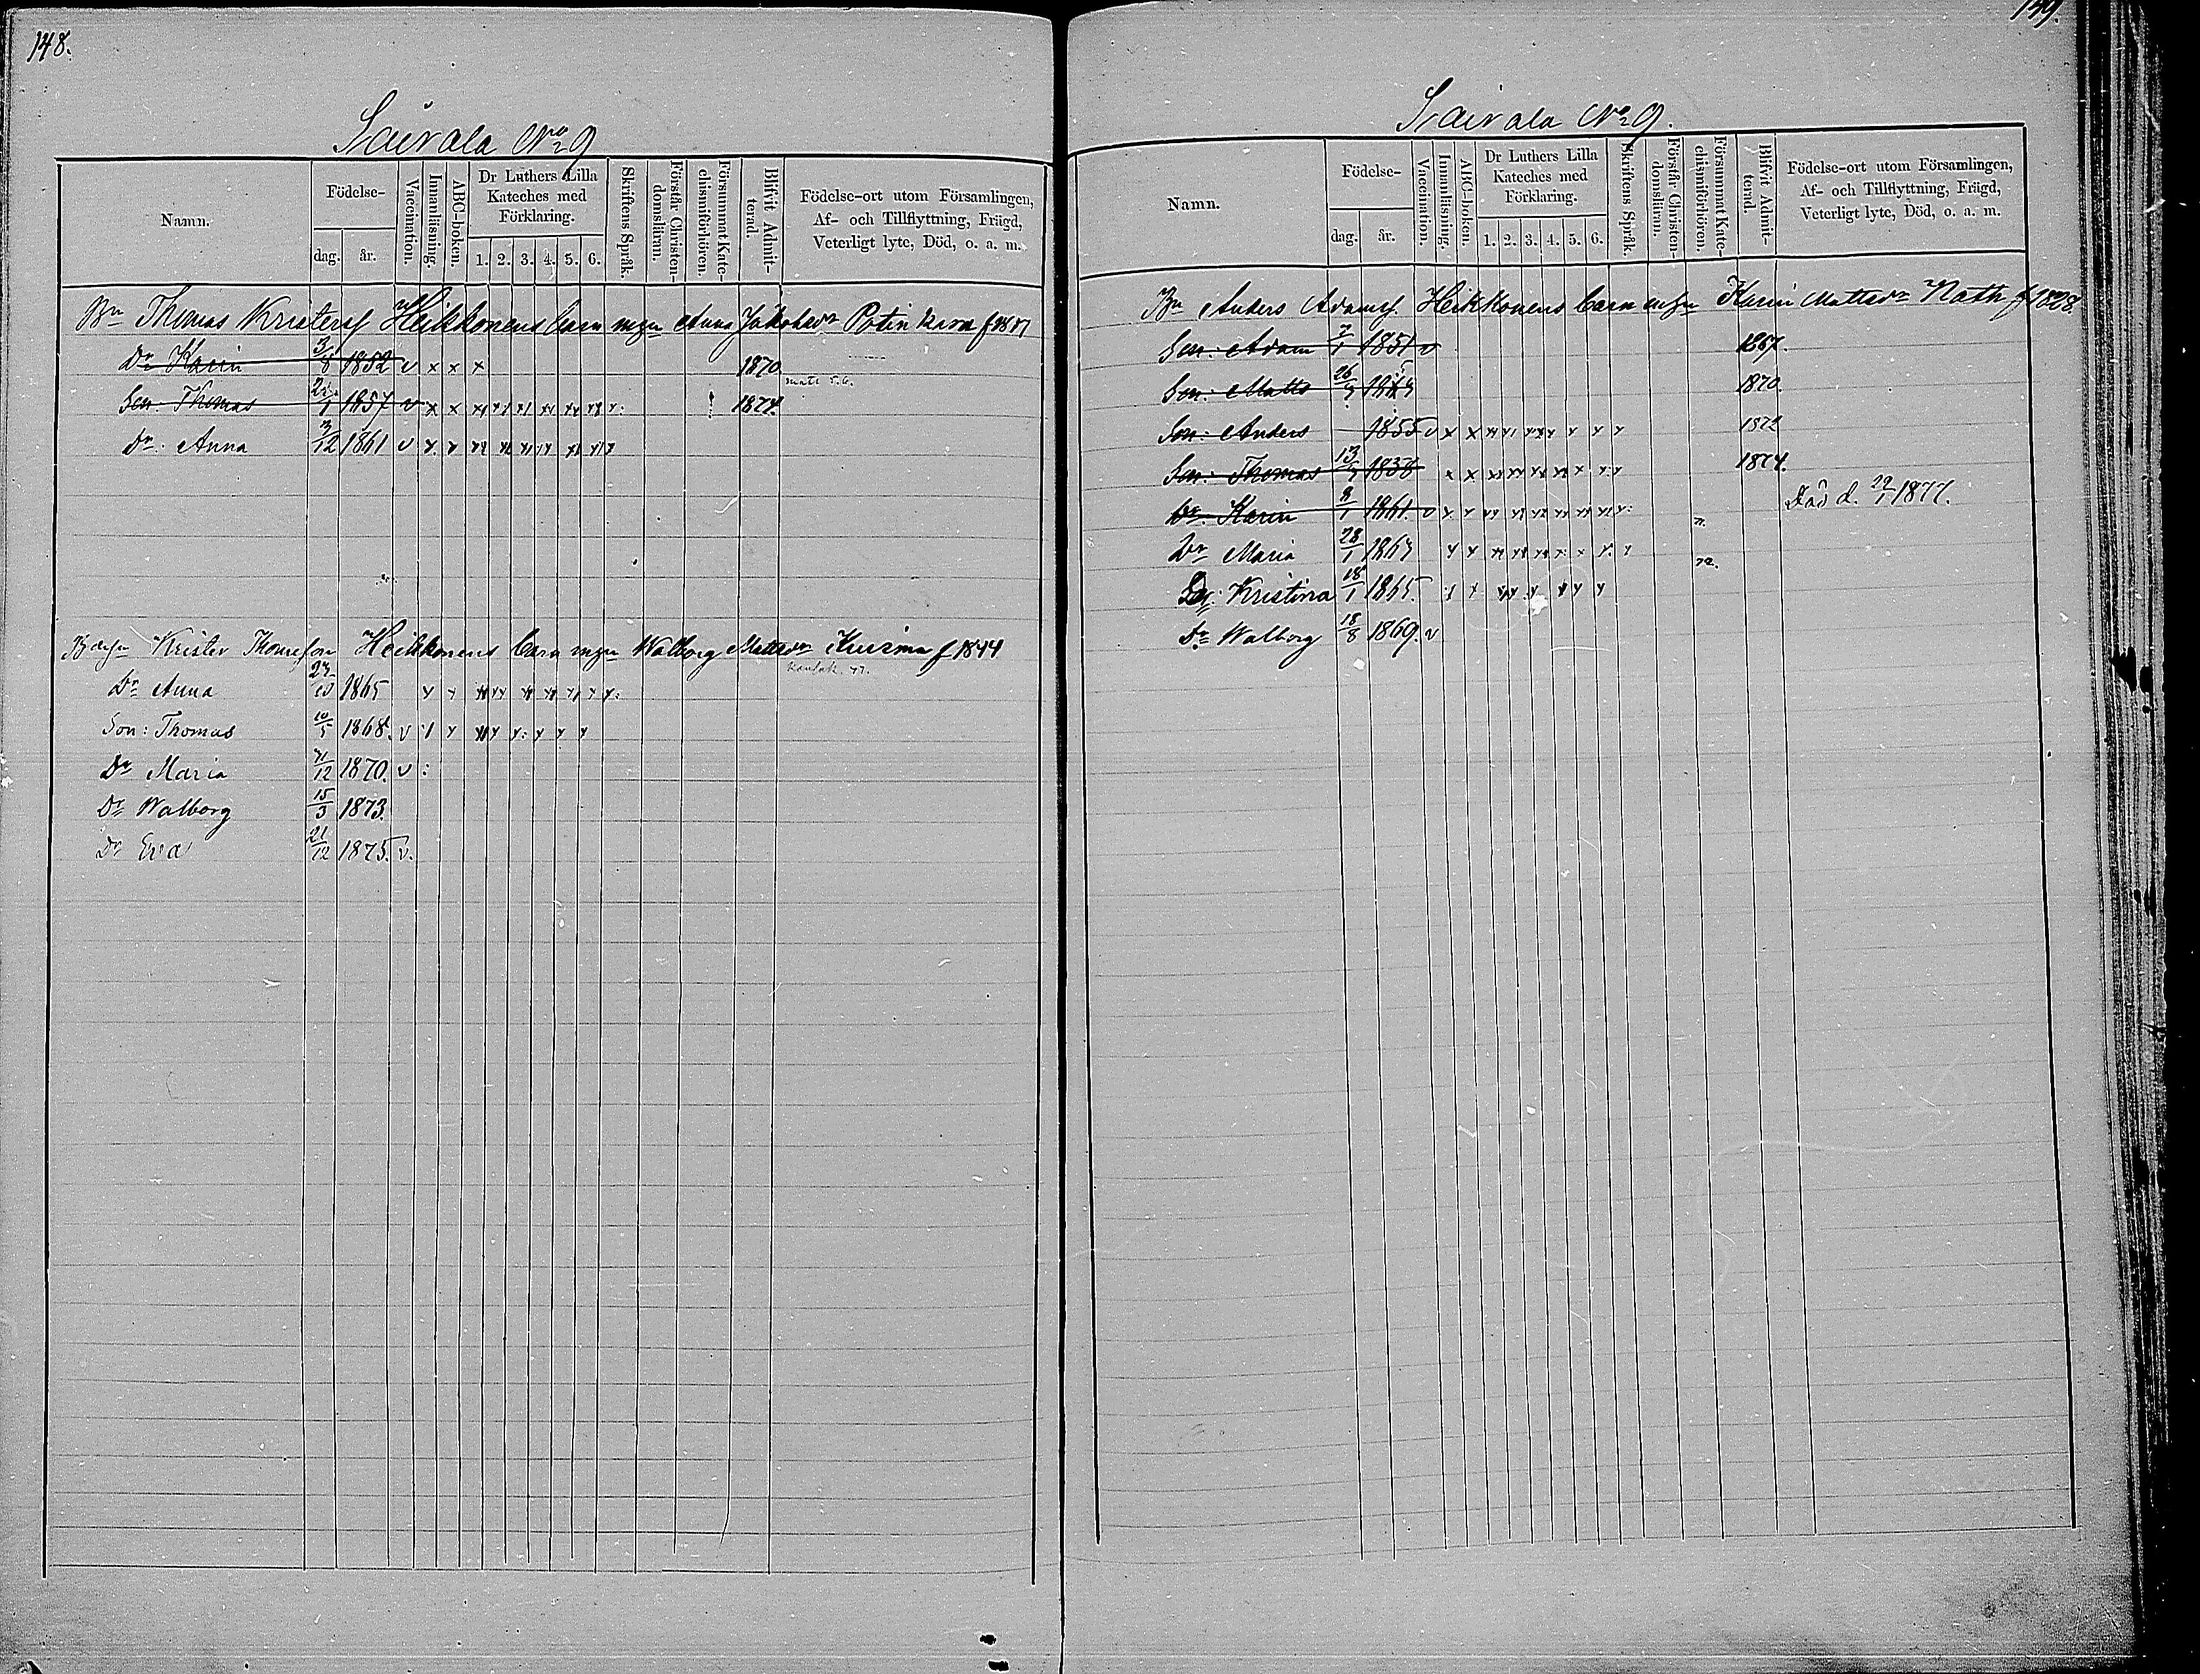 148.
Sairala No 9
Namn.
Födelse-
dag.
år.
Vaccination.
Innanläsning.
ABC-boken.
Dr Luthers Lilla Kateches med Förklaring.
1. 2. 3. 4. 5. 6.
Skriftens Språk.
Förstår Christen-domsläran.
Försummat Kate-chismiförhören.
Blifvit Admit-terad.
Födelse-ort utom Församlingen,
Af- och Tillflyttning, Frägd,
Veterligt lyte, Död, o. a. m.
Bn Thomas Kristersf Heikkonens barn m hn Anna Jakobsdr
Dr Karin 3/8 1852 v x x x 1870
Son: Thomas 1857 v x x 1874
Dr: Anna 3/12 1861 v
Krister Thomasson Heikkonens barn Walborg Mattsdr f 1844
Dr Anna 1865
Son: Thomas 10/5 1868. v
Dr Maria 1870. v
Dr Walborg 15/3 1873.
Dr Eva 21/12 1875. v.
149.
Sairala No 9.
Namn.
Födelse-
dag.
år.
Vaccination.
Innanläsning.
ABC-boken.
Dr Luthers Lilla Kateches med Förklaring.
1. 2. 3. 4. 5. 6.
Skriftens Språk.
Förstår Christen-domsläran.
Försummat Kate-chismiförhören.
Blifvit Admit-terad.
Födelse-ort utom Församlingen,
Af- och Tillflyttning, Frägd,
Veterligt lyte, Död, o. a. m.
Bn Anders Adamsf. Heikkonens barn m hn Karin Mattsdr f 1828.
Son: Adam 7/1 1851 v 1867.
Son: Matts 1870.
Son: Anders 1855 v x x 1872
Son: Thomas 1858 x x 1874.
Dr. Karin 8/1 1861. v x Död d. 22/1 1877.
Dr Maria 28/1
Dr: Kristina 18/1 1865.
Dr Walborg 18/8 1869. v